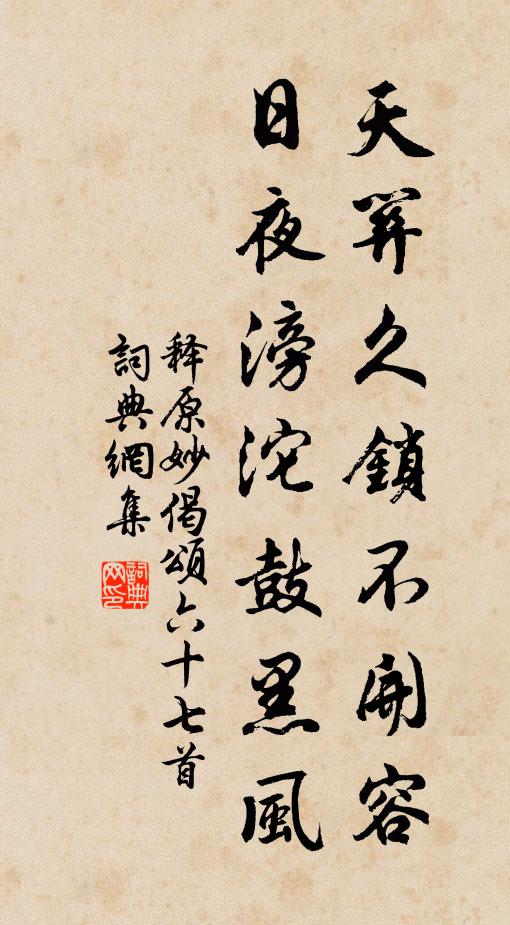 天羿久鎖不開容
日夜滂沱鼓黑風
释原妙偈頌六十七首
詞典網集
詞典
网印